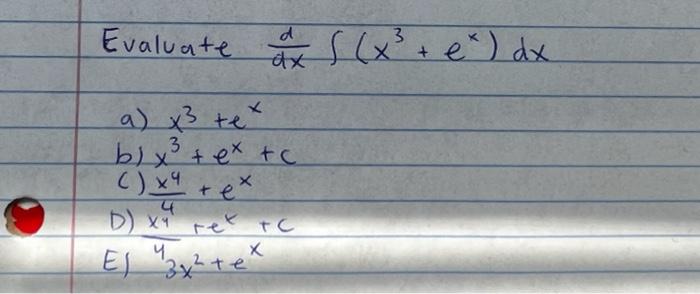 Evaluate d/dx ∫ (x³ + eˣ) dx
a) x³ + eˣ
b) x³ + eˣ + c
C) x⁴/4 + eˣ
D) x⁴/4 + eˣ + c
E) 3x² + eˣ